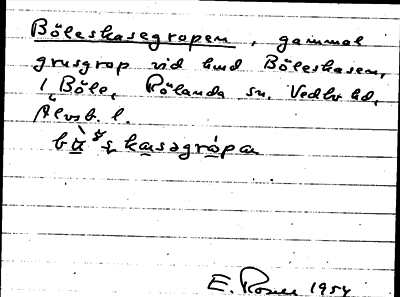 Böleskasegropen, gammal
grusgrop vid hmd Böleskasen,
1 Böle, Rölanda sn. Vedbo hd,
Älvsb. l.
kasagrópa
E. 1954